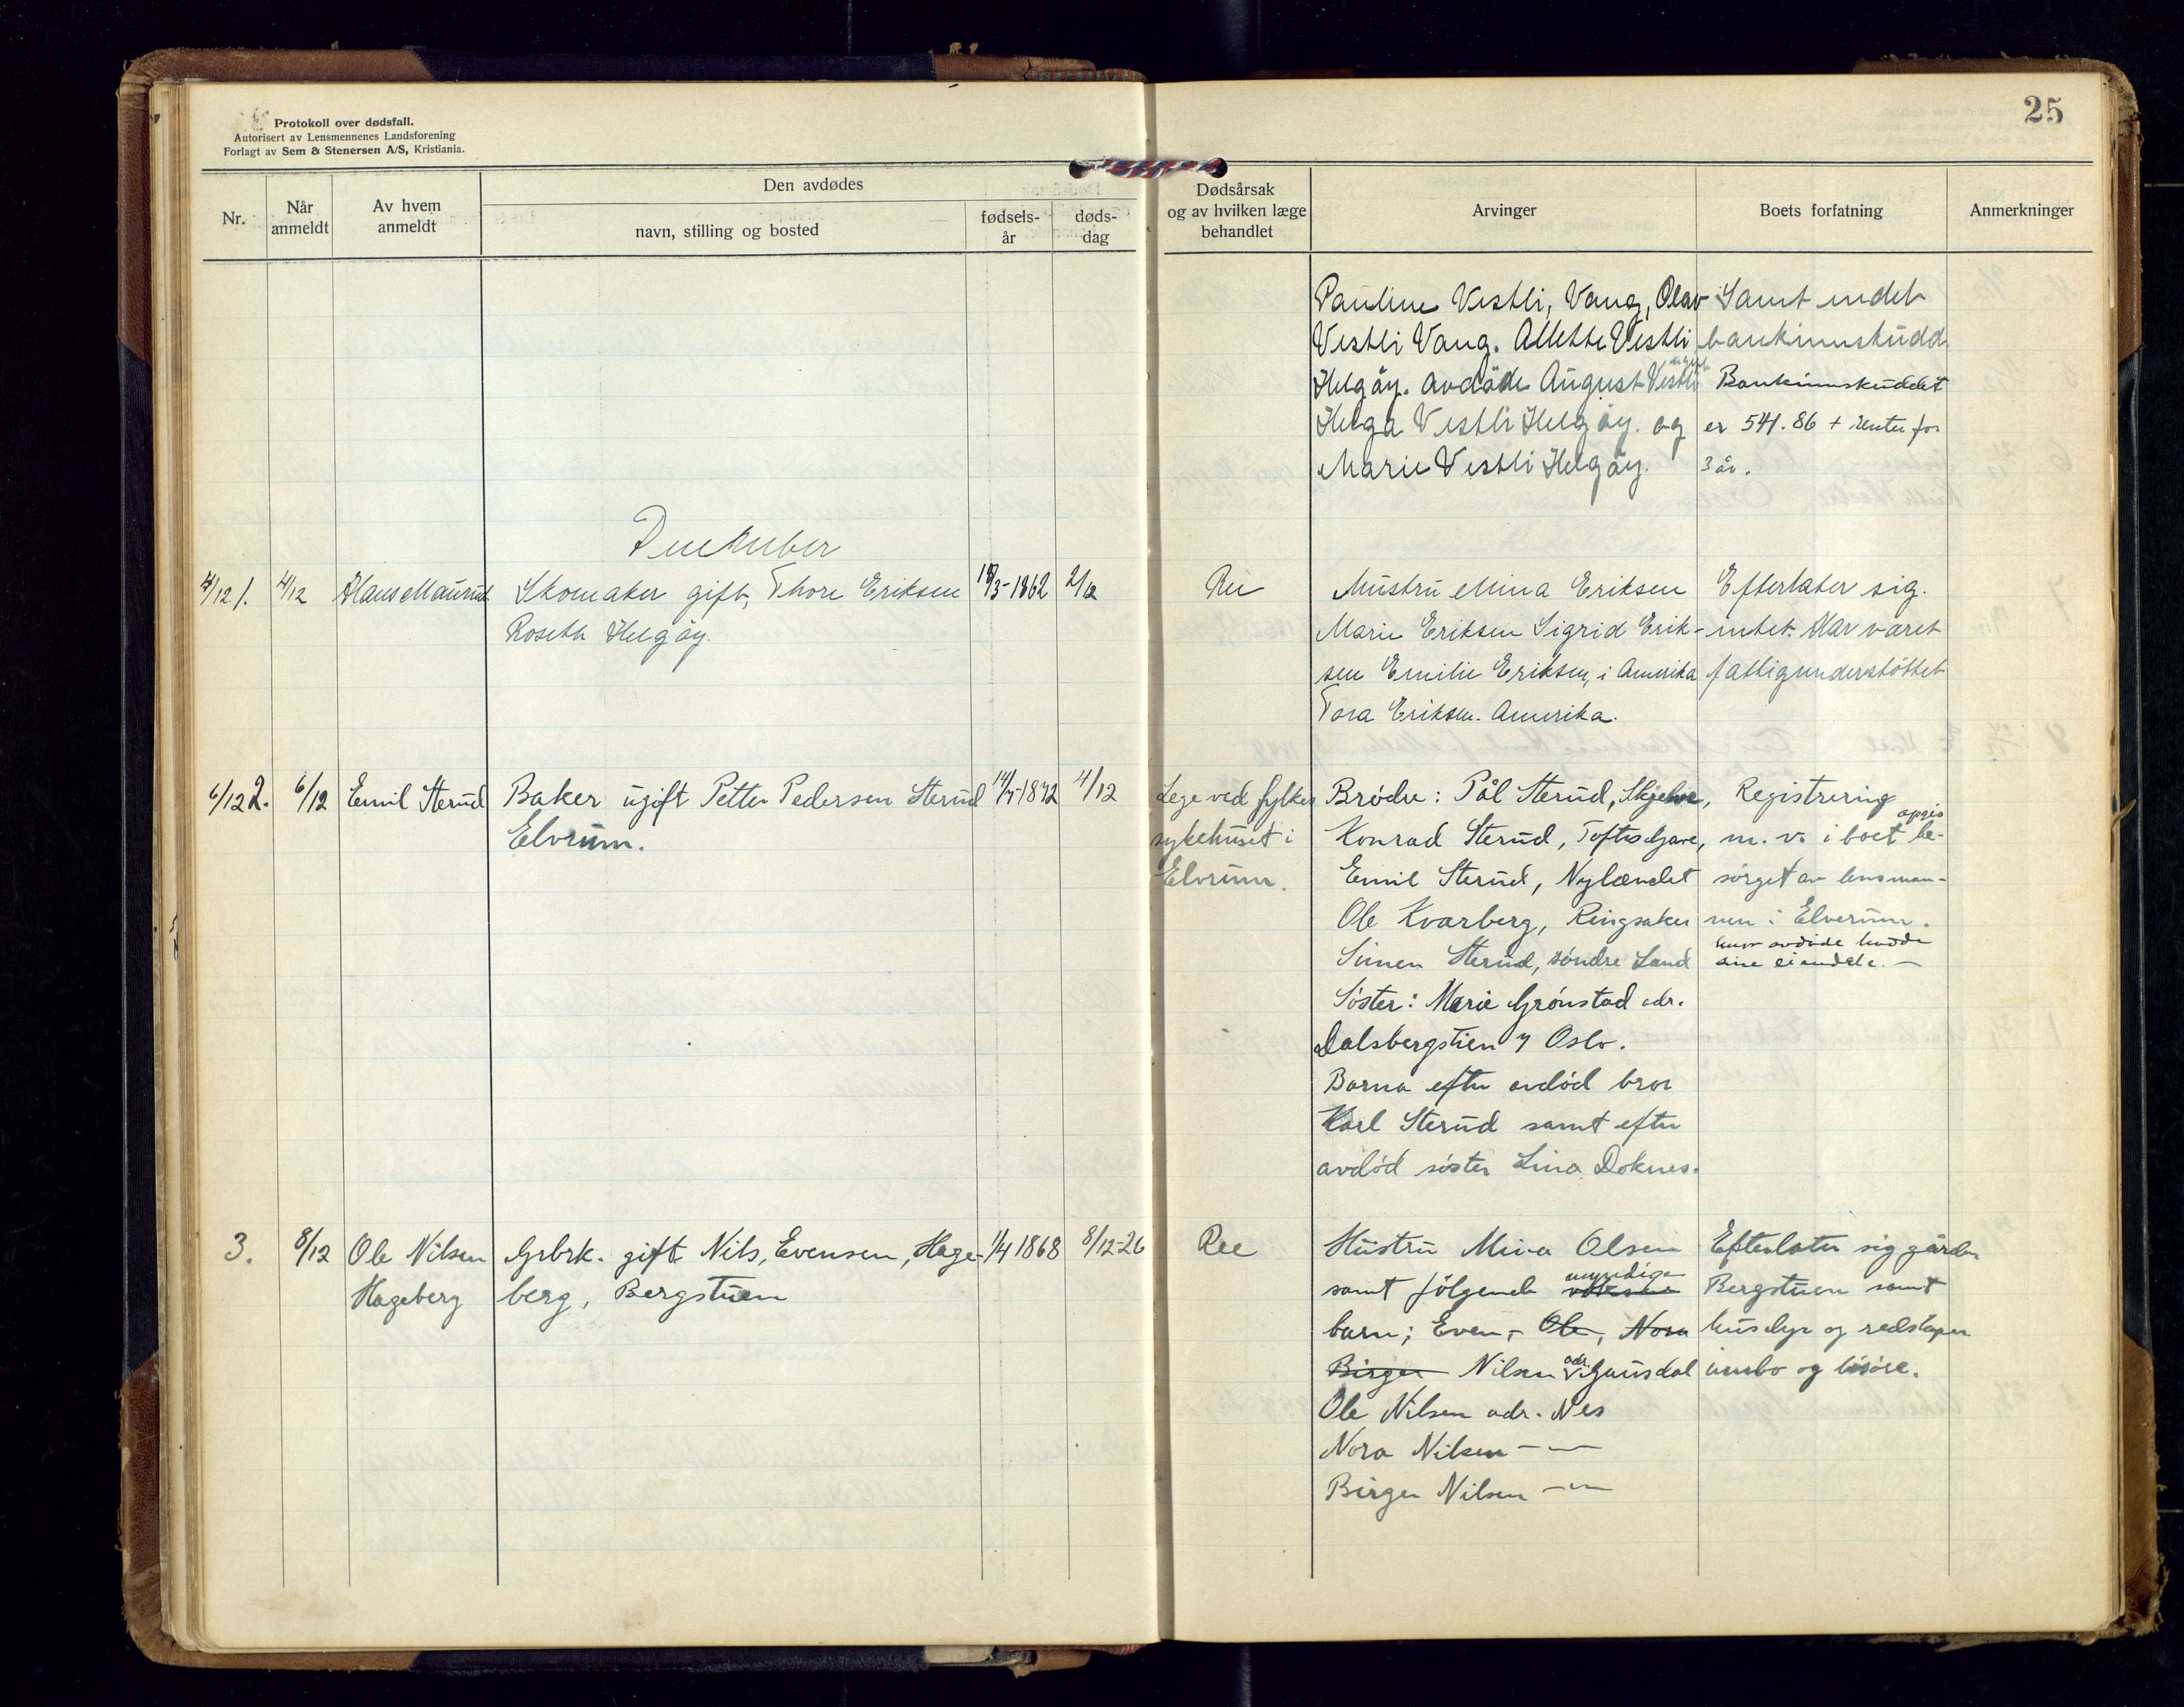 Protokoll over dødsfall.
Autorisert av Lensmennenes Landsforening
Forlagt av Sem & Stenersen A/S, Kristiania.
25
Nr.
Når anmeldt
Av hvem anmeldt
Den avdødes
navn, stilling og bosted
fødsels-år
døds-dag
Dødsårsak og av hvilken læge behandlet
Arvinger
Boets forfatning
Anmerkninger
Pauline Vestli, Vang, Olav
Vestli Vang. Allette Vestli
Helgøy. avdøde August Vestli
Helga Vestli Helgøy. og
Marie Vestli Helgøy.
Samt endel
bankinnskudd
Bankinnskuddet
er 541.86 + renter for
3 år.
December
4/12 1.
4/12
Hans Maurud
Skomaker gift, Thore Eriksen
Roseth Helgøy.
/3-1862
2/12
Ree
Hustru Mina Eriksen
Marie Eriksen Sigrid Erik-
sen Emilie Eriksen, i Amerika
Tora Eriksen. Amerika.
Efterlater sig.
intet. Har været
fattigunderstøttet
6/12 2.
6/12
Emil Sterud
Baker ugift Petter Pedersen Sterud
Elvrum.
14/5-1872
4/12
Lege ved fylkes
sykehuset i
Elvrum.
Brødre: Pål Sterud, Skjelve,
Konrad Sterud, Toftes Gave,
Emil Sterud, Nylændet
Ole Kvarberg, Ringsaker
Simen Sterud, søndre Land
Søster: Marie Grønstad adr.
Dalsbergstien 7 Oslo.
Barna efter avdød bror
Karl Sterud samt efter
avdød søster Lina Doknes.
Registrering
opgis
m. v. i boet be-
sørget av lensman-
nen i Elverum.
hvor avdøde hadde
sine eiendele. —
3.
8/12
Ole Nilsen
Hageberg
Grbrk. gift Nils, Evensen, Hage-
berg, Bergstuen
1/4 1868
8/12-26
Ree
Hustru Mina Olsen
samt følgende voksne myndige
barn; Even, Ole, Nora
Birger Nilsen adr. Gausdal
Ole Nilsen adr. Nes
Nora Nilsen —"—
Birger Nilsen —"—
Efterlater sig gården
Bergstuen samt
husdyr og redskaper
innbo og løsøre.